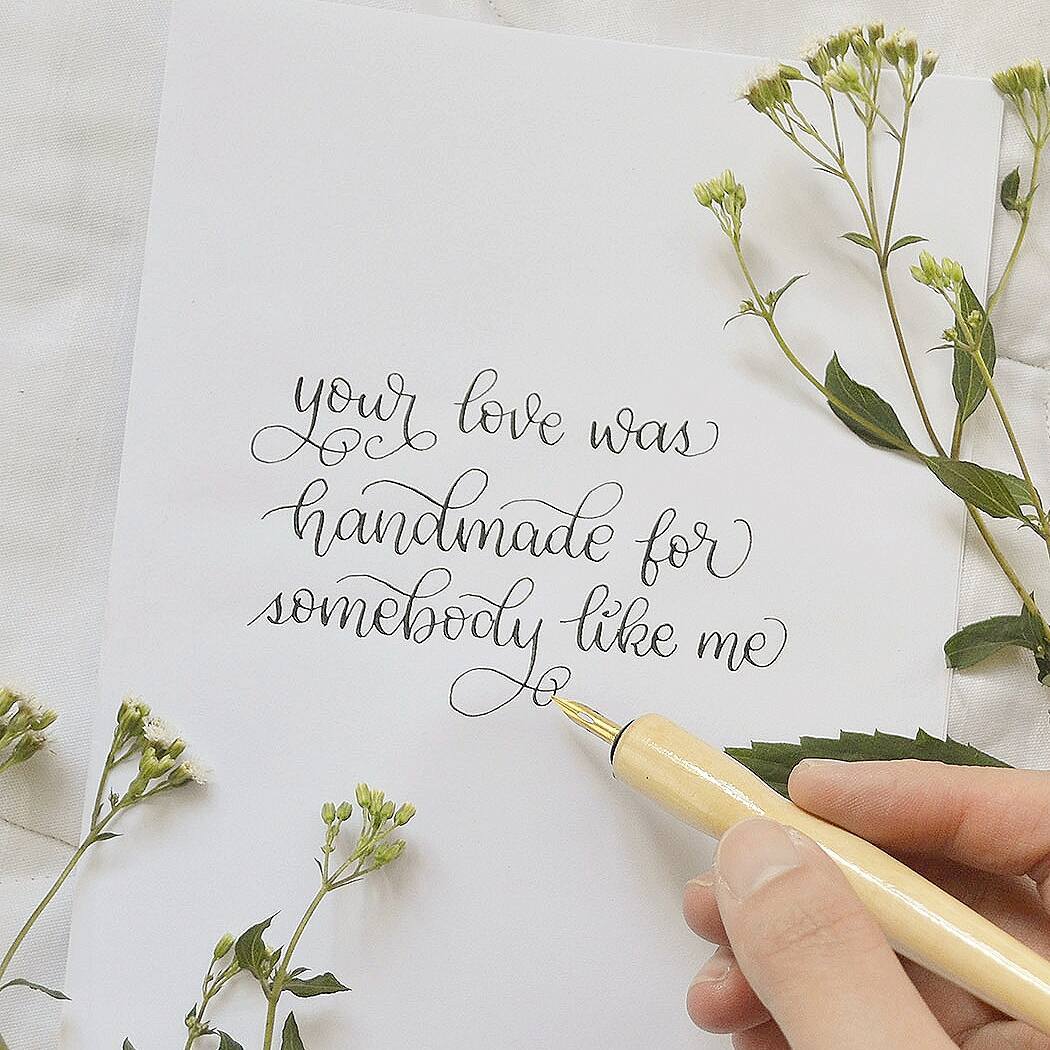 your love was
handmade for
somebody like me